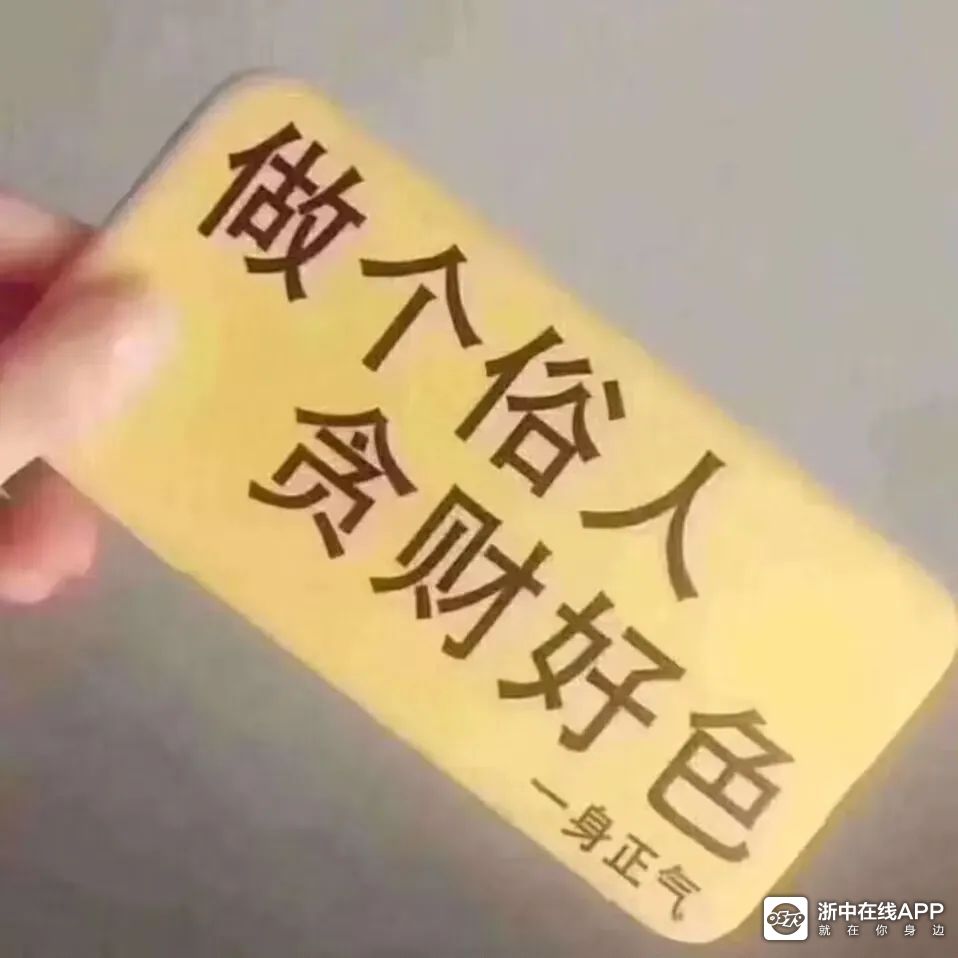 做个俗人
贪财好色
一身正气
浙中在线APP
就在你身边